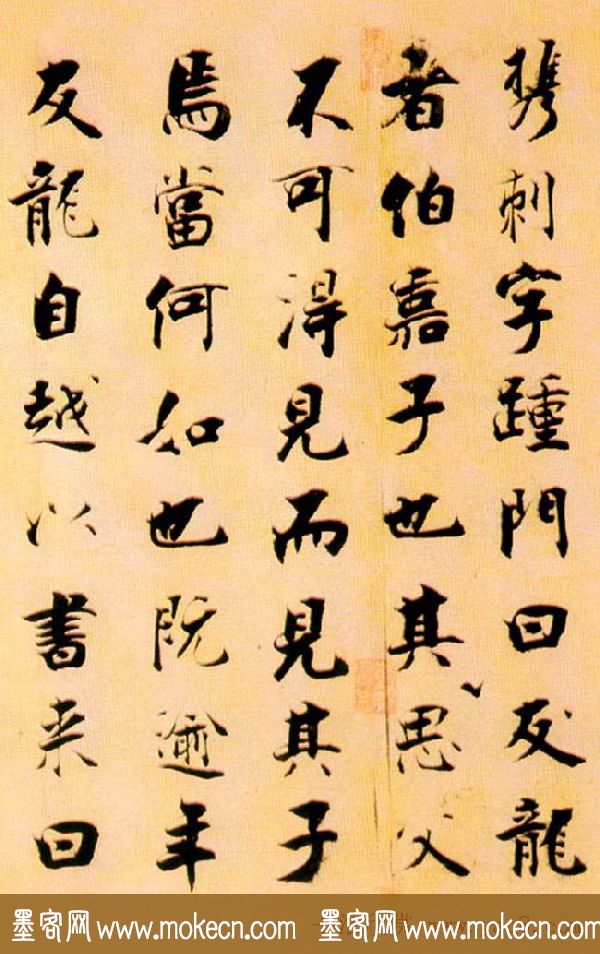 携刺字踵門曰友龍
者伯嘉子也其思父
不可得見而見其子
焉當何如也既逾年
友龍自越以書来曰
墨客网www.mokecn.com 墨客网www.mokecn.com